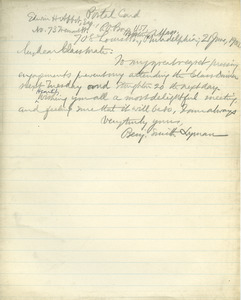 Postal Card
Edwin H. Abbot, Esq.
No. 73
708 Locust St., Philadelphia, 21 June, 190
My dear Classmate,
To my great regret pressing
engagements prevent my attending the Class Dinner
next Tuesday and
Heartily
wishing you all a most delightful meeting,
and feeling sure that it will be so, I am always
Very truly yours,
Benj. Smith Lyman